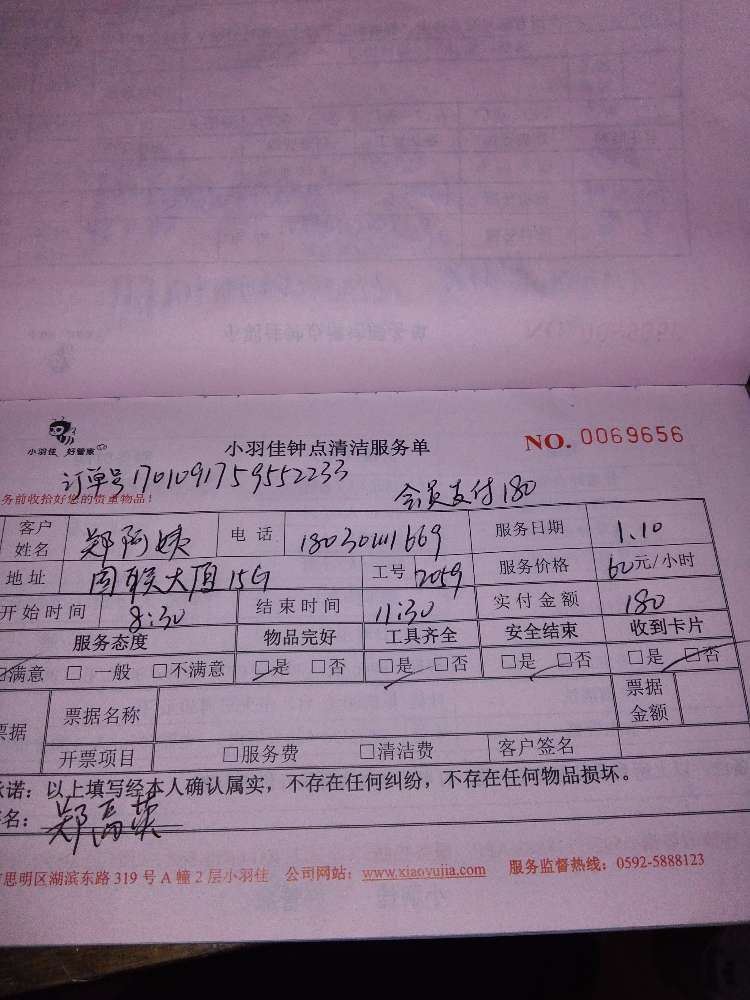 小羽佳 好管家
小羽佳钟点清洁服务单
NO. 0069656
订单号1701091759552233
务前收拾好您的贵重物品！
会员支付180
客户姓名 郑阿姨 电话 服务日期 1.10
地址 国联大厦15G 工号 2059 服务价格 60元/小时
开始时间 8:30 结束时间 11:30 实付金额 180
服务态度 物品完好 工具齐全 安全结束 收到卡片
☑满意 □一般 □不满意 ☑是 □否 ☑是 □否 ☑是 □否 □是 ☑否
票据 票据名称 票据金额
开票项目 □服务费 □清洁费 客户签名
承诺：以上填写经本人确认属实，不存在任何纠纷，不存在任何物品损坏。
名：
思明区湖滨东路 319 号 A 幢 2 层小羽佳 公司网站：www.xiaoyujia.com 服务监督热线：0592-5888123